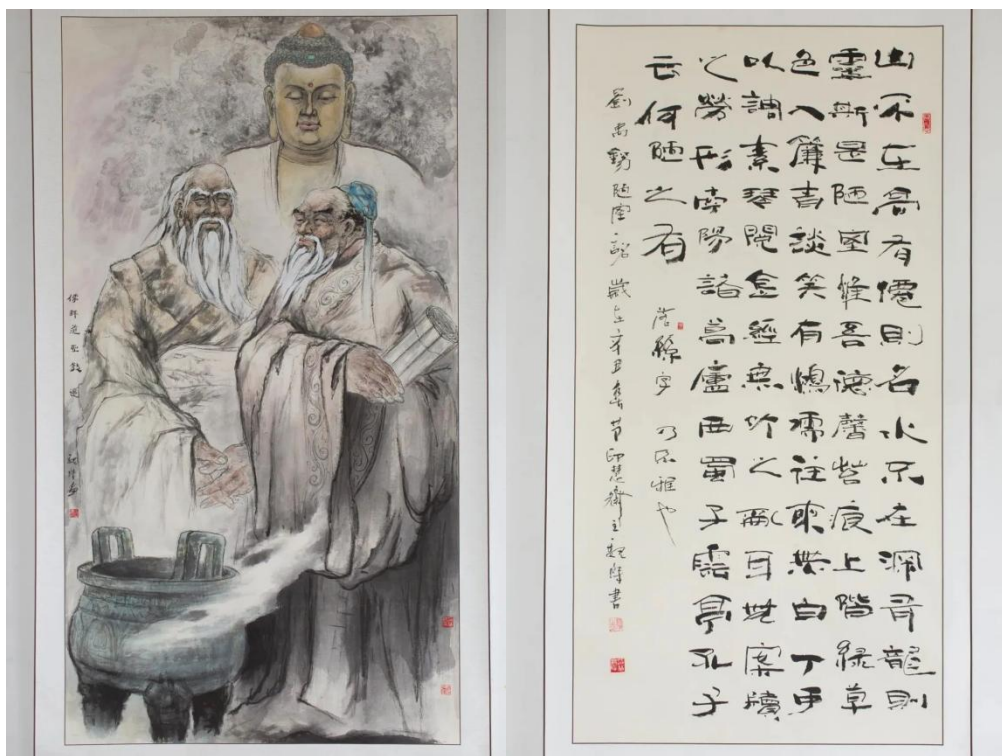 山不在高有僊則名水不在渊有龍則
靈斯是陋室惟吾德馨苔痕上階緑草
色入簾青談笑有鴻儒往來無白丁可
以調素琴閲金經無竹之亂耳無案牘
之勞形南陽諸葛廬西蜀子雲亭孔子
云何陋之有
落絲字 乃不雅也
劉禹錫陋室銘 歲在辛丑春节印慧齋主魏書